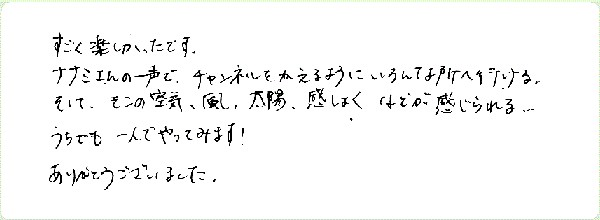 すごく楽しかったです。
ナナミさんの一声で、チャンネルをかえるようにいろんな所へ行ける。
そして、そこの空気、風、太陽、感しょく などが感じられる…
うちでも 一人でやってみます！
ありがとうございました。